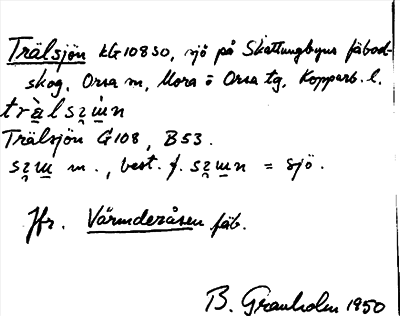 Trälsjön kG10830, sjö på Skattungbyns fäbod-
skog, Orsa sn, Mora o Orsa tg, Kopparb. l.
Trälsjön G108, B53.
m., best. f. = sjö.
Jfr. Värmderåsen fäb.
B. Granholm 1950